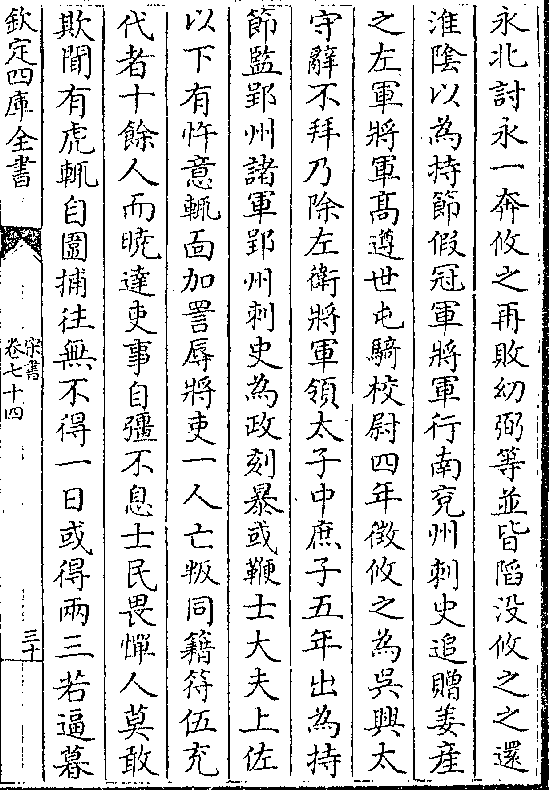 永北討永一奔攸之再敗幼弼等並皆陷没攸之之還
淮陰以為持節假冠軍將軍行南兖州刺史追贈姜産
之左軍將軍髙遵世屯騎校尉四年徵攸之為吳興太
守辭不拜乃除左衛將軍領太子中庶子五年出為持
節監郢州諸軍郢州刺史為政刻暴或鞭士大夫上佐
以下有忤意輒面加詈辱將吏一人亡叛同籍符伍充
代者十餘人而曉達吏事自彊不息士民畏憚人莫敢
欺聞有虎輒自圍捕往無不得一日或得兩三若逼暮
欽定四庫全書
宋書
卷七十四
三十